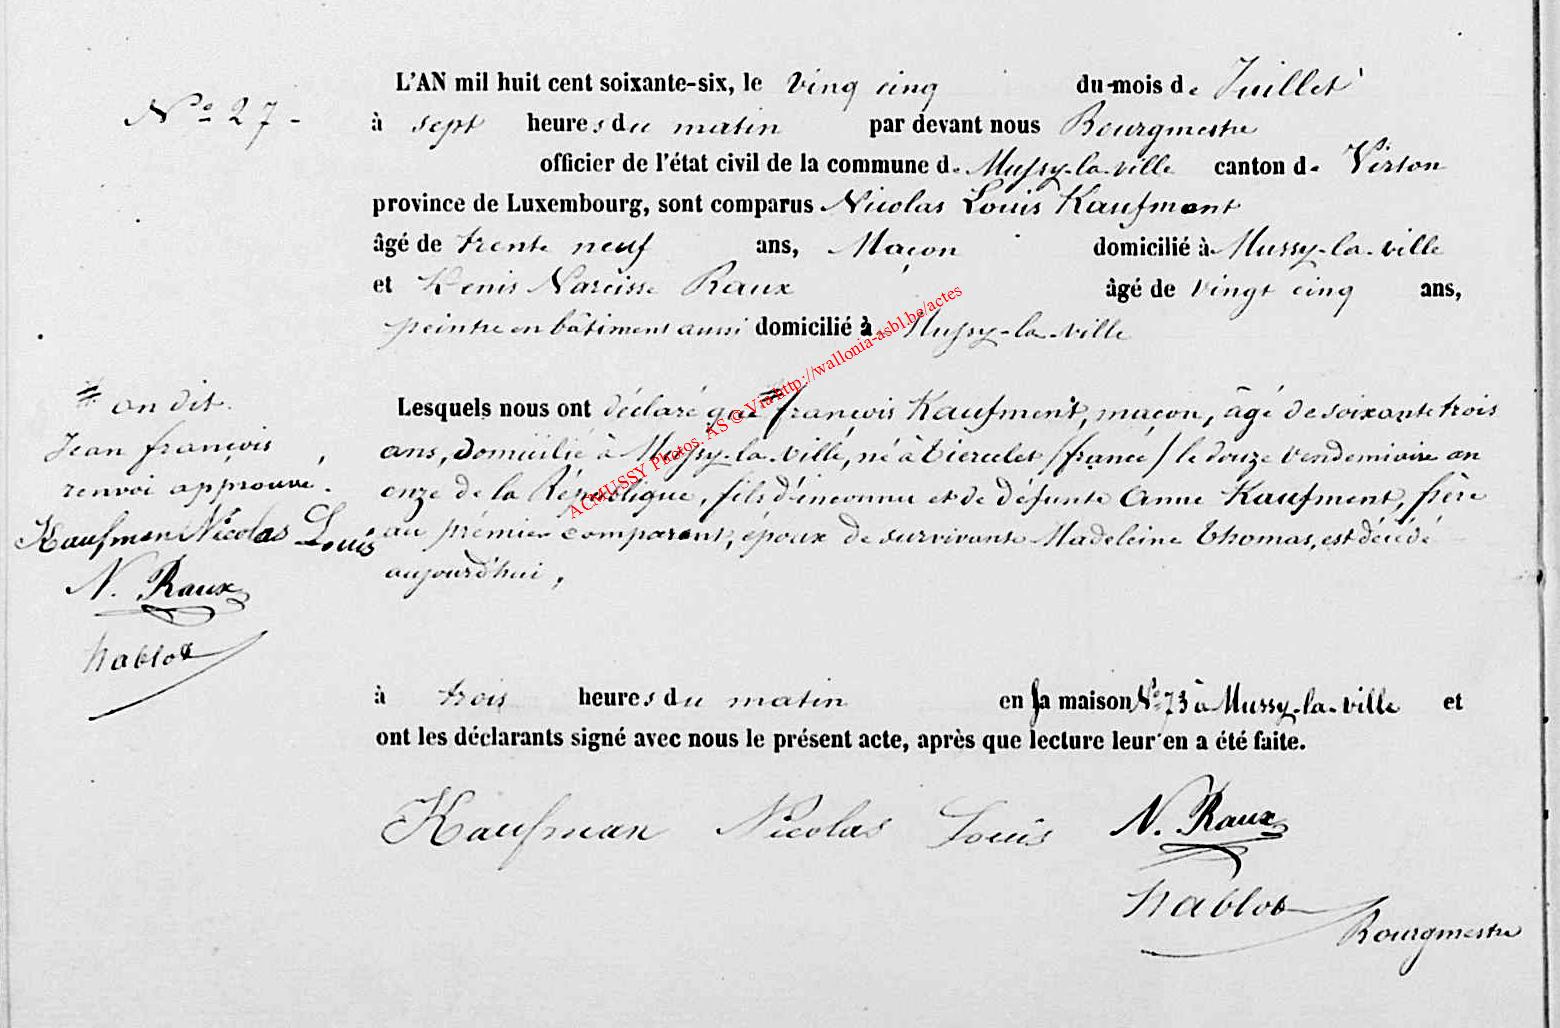 L'AN mil huit cent soixante-six, le Vinq cinq du mois de Juillet
N° 27 -
à sept heures du matin par devant nous Bourgmestre
officier de l'état civil de la commune de Mussy-la-ville canton de Virton
province de Luxembourg, sont comparus Nicolas Louis Kaufmant
âgé de trente neuf ans, Maçon domicilié à Mussy-la-ville
et Narcisse Raux âgé de vingt cinq ans,
peintre en bâtiment aussi domicilié à Mussy-la-ville
# on dit.
Jean françois,
renvoi approuvé.
Kaufman Nicolas Louis
N. Raux
hablot
Lesquels nous ont déclaré que # françois Kaufment, maçon, âgé de soixante trois
ans, domicilié à Mussy-la-ville, né à tiercelet (france) le douze Vendemiaire an
onze de la République, fils d'inconnu et de défunte Anne Kaufment, frère
au prémier comparant, époux de survivante Madeleine Thomas, est décédé
aujourd'hui,
à trois heures du matin en sa maison N° 73 à Mussy-la-ville et
ont les déclarants signé avec nous le présent acte, après que lecture leur en a été faite.
Kaufman Nicolas Louis N. Raux
hablot
Bourgmestre
ACMUSSY Photos. AS © Via http://wallonia-asbl.be/actes